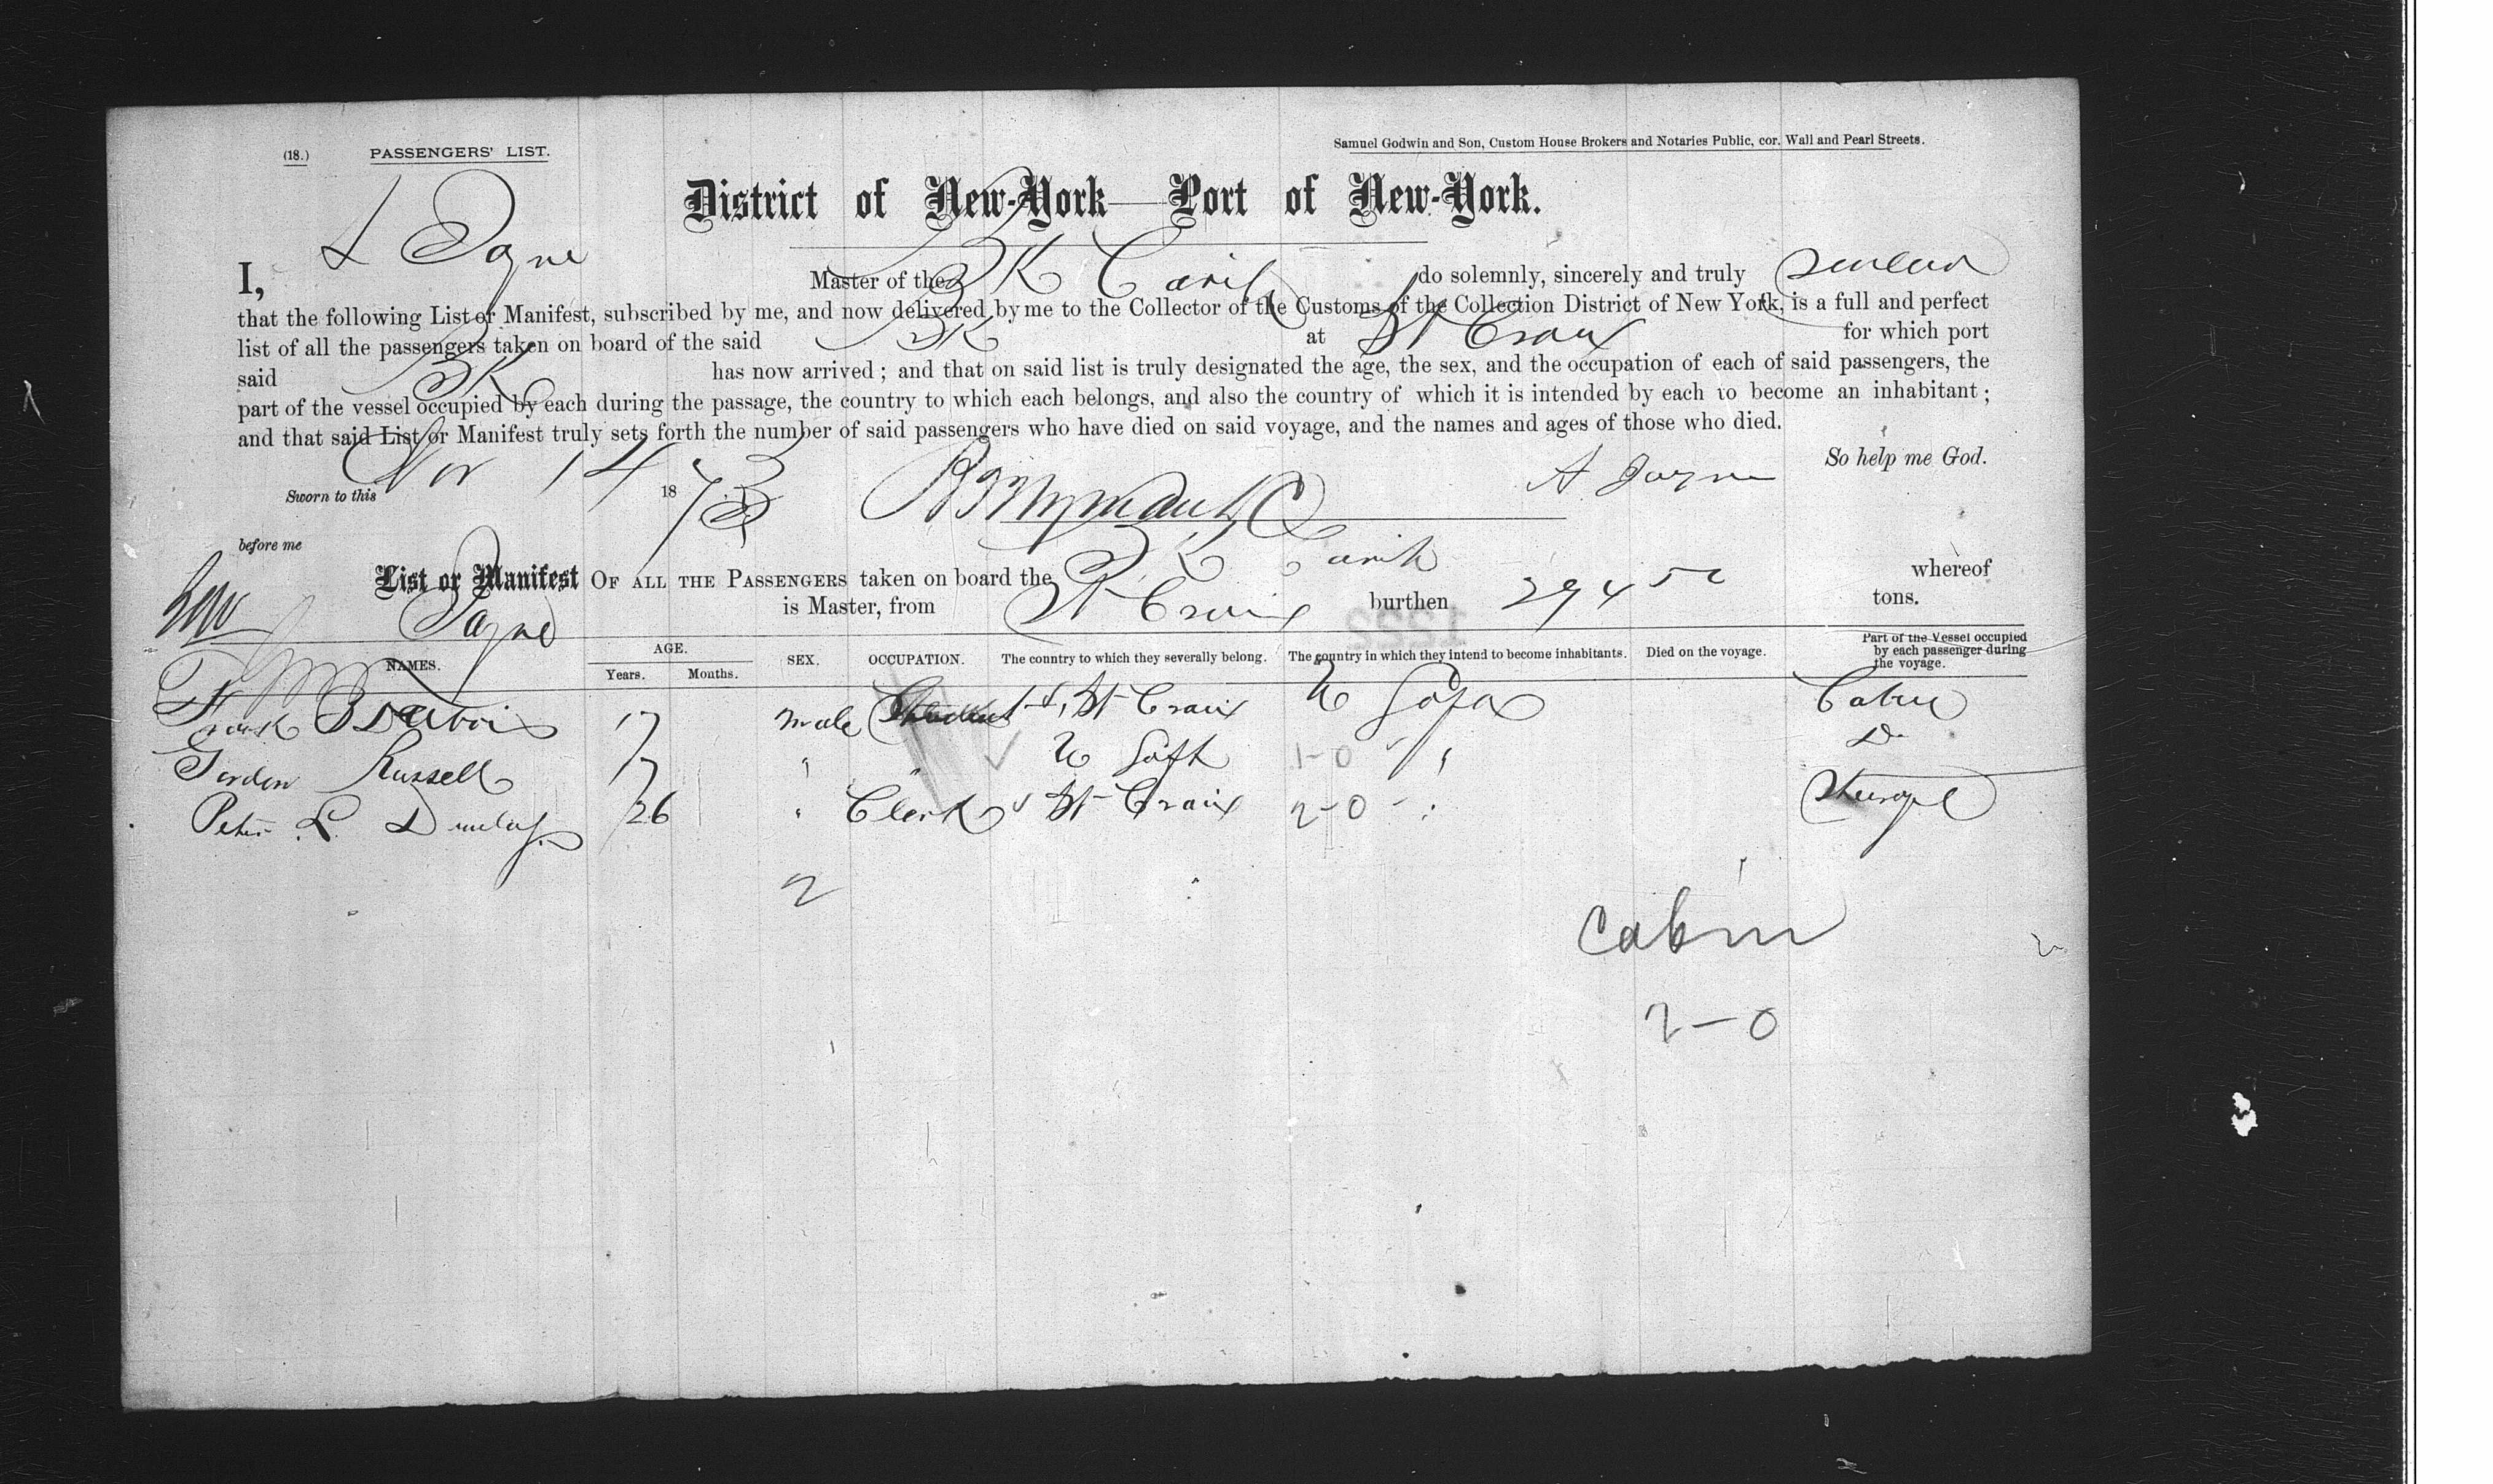 (18.) PASSENGERS' LIST.
Samuel Godwin and Son, Custom House Brokers and Notaries Public, cor. Wall and Pearl Streets.
District of New-York—Port of New-York.
I, Master of the BK do solemnly, sincerely and truly
that the following List or Manifest, subscribed by me, and now delivered by me to the Collector of the Customs of the Collection District of New York, is a full and perfect
list of all the passengers taken on board of the said BK at St Croix for which port
said BK has now arrived; and that on said list is truly designated the age, the sex, and the occupation of each of said passengers, the
part of the vessel occupied by each during the passage, the country to which each belongs, and also the country of which it is intended by each to become an inhabitant;
and that said List or Manifest truly sets forth the number of said passengers who have died on said voyage, and the names and ages of those who died.
So help me God.
Sworn to this Nov 14 1873
before me
List or Manifest OF ALL THE PASSENGERS taken on board the whereof
is Master, from St Croix burthen 294 50 tons.
NAMES. AGE. Years. Months. SEX. OCCUPATION. The country to which they severally belong. The country in which they intend to become inhabitants. Died on the voyage. Part of the Vessel occupied by each passenger during the voyage.
Frank 17 male Student St Croix Cabin
Gordon Russell 17 " " 1-0 " " Do
Peter L. 26 " Clerk St Croix 2-0 " Steerage
2
Cabin
2-0